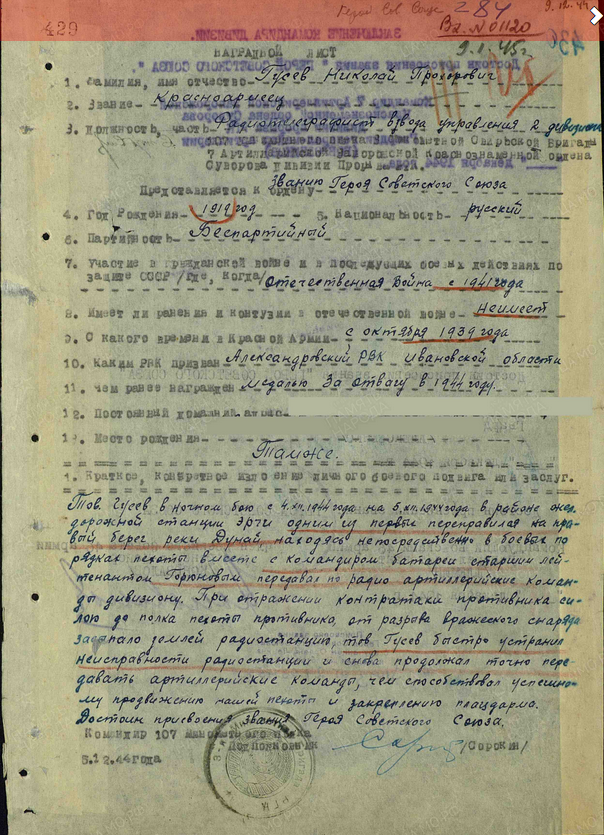 429
Герой Сов Союз
284
9.12.44
Вх. № 01120
9.1.45г.
430
НАГРАДНОЙ ЛИСТ
1. Фамилия, имя отчество Гусев Николай Прохорович
2. Звание Красноармеец
3. Должность, часть Радиотелеграфист взвода управления 2 дивизиона
Бригады
7 Артиллерийской Запорожской Краснознаменной ордена
Суворова дивизии Прорыва РГК.
Представляется к ордену званию Героя Советского Союза
4. Год Рождения 1919 год 5. Национальность русский
6. Партийность Беспартийный
7. Участие в гражданской войне и в последующих боевых действиях по
защите СССР /где, когда/ Отечественная война с 1941 года
8. Имеет ли ранения и контузии в отечественной войне Неимеет
9. С какого времени в Красной Армии с октября 1939 года
10. Каким РВК призван Александровский РВК Ивановской области
11. Чем ранее награжден Медалью За отвагу в 1944 году.
12. Постоянный домашний адрес
13. Место рождения
Тамже.
1. Краткое, конкретное изложение личного боевого подвига или заслуг.
Тов. Гусев в ночном бою с 4.XII.1944 года на 5.XII.1944 года в районе желез-
дорожной станции Эрчи одним из первых переправился на пра-
вый берег реки Дунай находясь непосредственно в боевых по-
рядках пехоты вместе с командиром батареи старшим лей-
тенантом Горюновым передавал по радио артиллерийские коман-
ды дивизиону. При отражении контратаки противника си-
лою до полка пехоты противника, от разрыва вражеского снаряда
засыпало землей радиостанцию, тов. Гусев быстро устранил
неисправности радиостанции и снова продолжал точно пере-
давать артиллерийские команды, чем способствовал успешно-
му продвижению нашей пехоты и закреплению плацдарма.
Достоин присвоения звания Героя Советского Союза.
Командир 107 минометного полка
Подполковник /Сорокин/
5.12.44 года